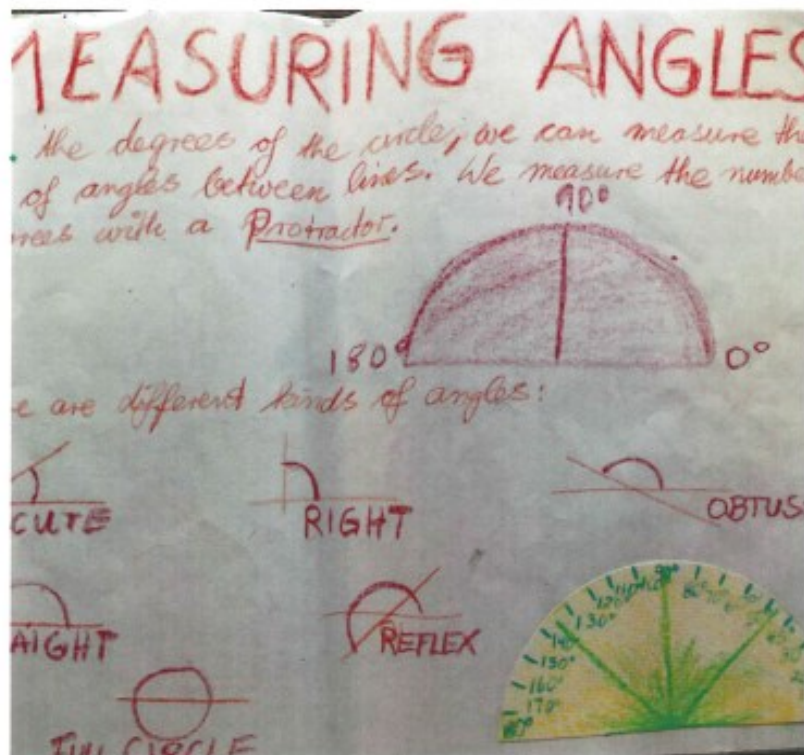 MEASURING ANGLES
the degrees of the circle, we can measure the
of angles between lines. We measure the number
rees with a Protractor.
90°
180° 0°
e are different kinds of angles:
CUTE RIGHT OBTUS
AIGHT REFLEX
FULL CIRCLE
180° 170° 160° 150° 140° 130° 120° 110° 90° 80° 70°